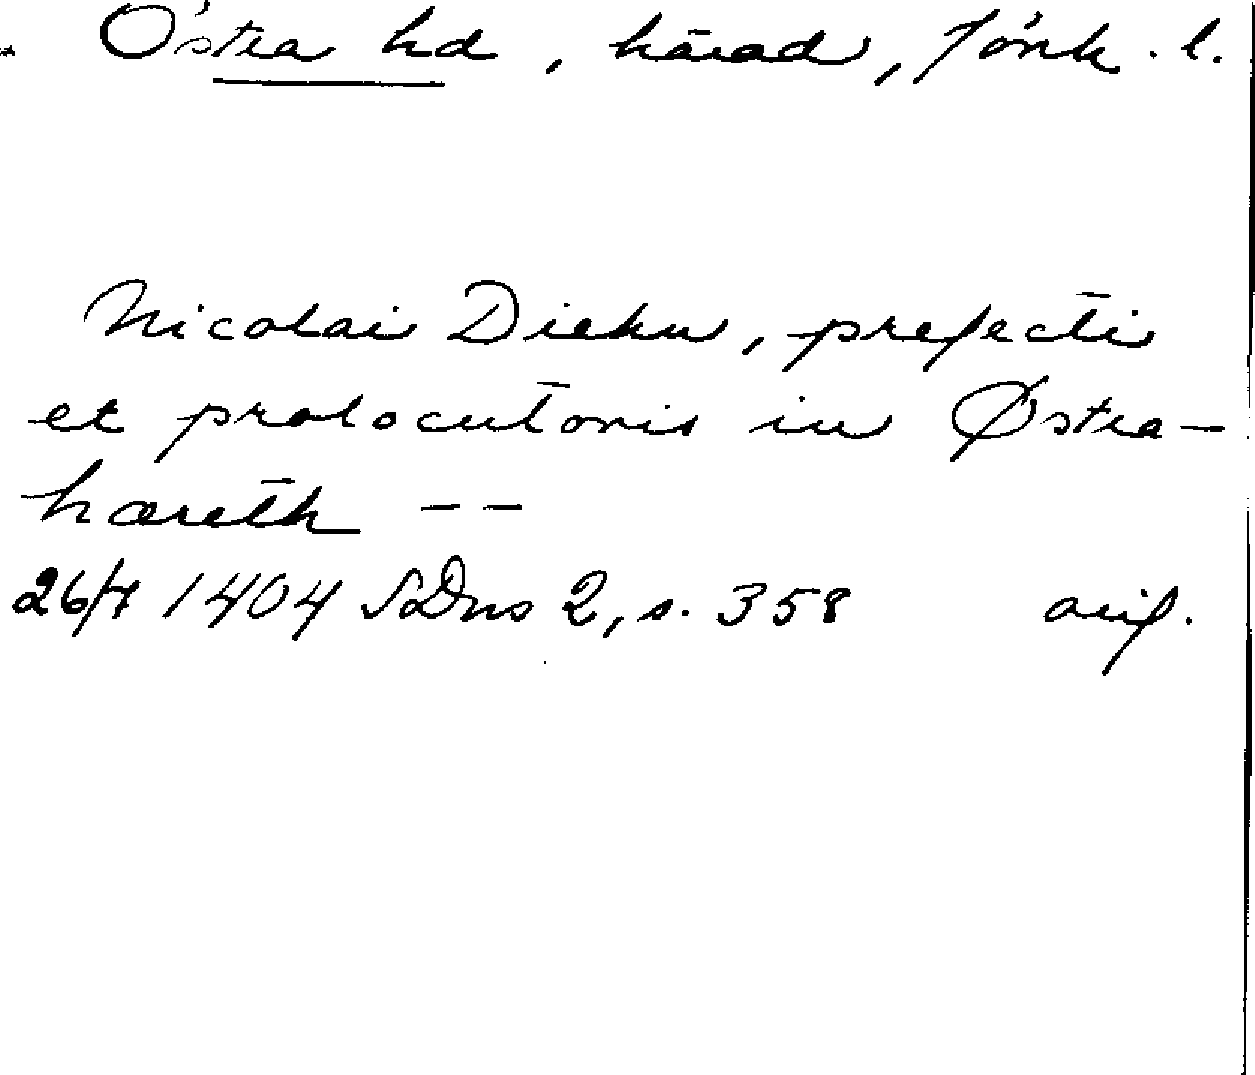 Östra hd, härad, Jönk. l.
Nicolai Diekn, prefecti
et prolocutoris in Østra-
hæreth --
26/4 1404 SDns 2, s. 358 avs.